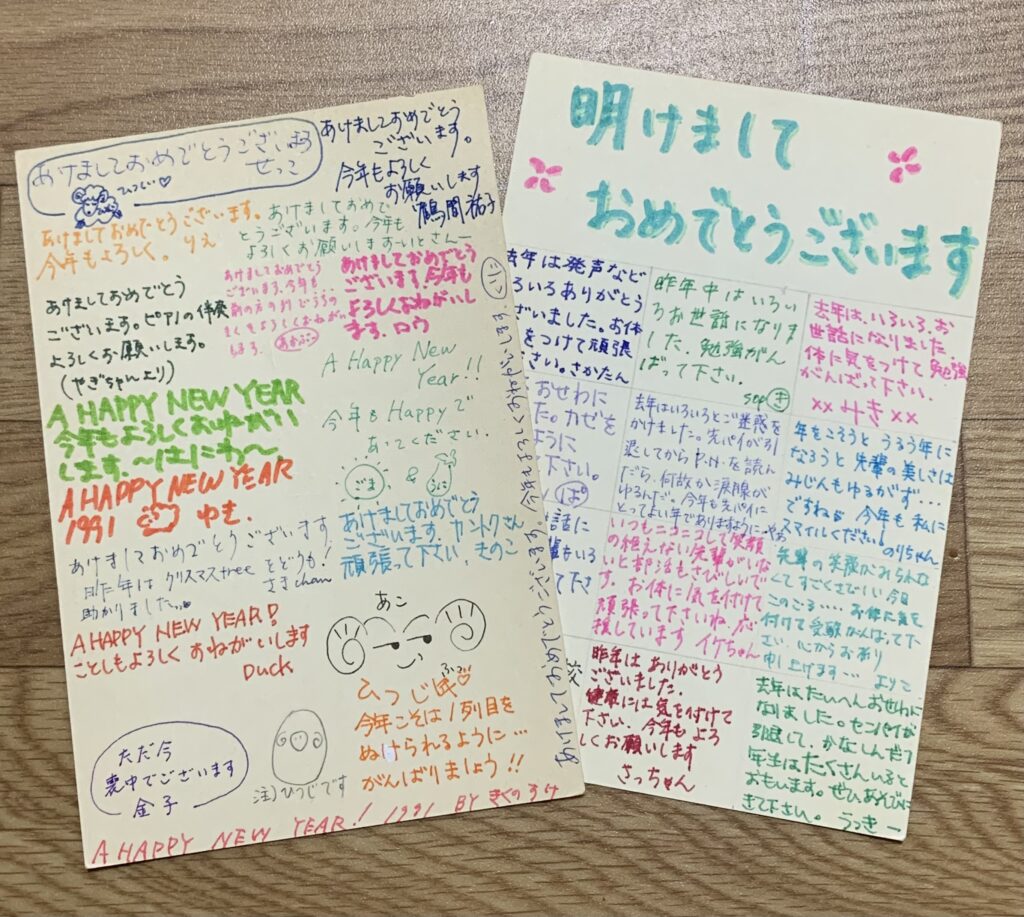 あけましておめでとうございまる
せっこ
ひつじ♡
あけましておめでとう
ございます。
今年もよろしく
お願いします
鶴間祐子
あけましておめでとうございます。
今年もよろしく。りえ
あけましておめで
とうございます。今年も
よろしくお願いします
あけましておめでとう
ございます。ピアノの伴奏
よろしくお願いします。
(やぎちゃんより)
あけましておめでとう
ございます。今年も...
あけましておめでとう
ございます。今年も
よろしくおねがいし
ます。ロウ
A HAPPY NEW YEAR
今年もよろしくおねがい
します。
A Happy New
Year!!
今年もHappyで
あってください。
ごま
&
うに
A HAPPY NEW YEAR
1991
ゆき.
あけましておめでとう
ございます。カントクさん
頑張って下さい。きのこ
あけましておめでとうございます
昨年はクリスマスtree
とどうも!
助かりました
さきchan
A HAPPY NEW YEAR!
ことしもよろしくおねがいします
Duck
あこ
ひつじ
今年こそは1列目を
ぬけられるように…
がんばりましょう!!
ただ今
喪中でございます
金子
注)ひつじです
A HAPPY NEW YEAR! 1991 BY きくのすけ
明けまして
おめでとうございます
去年は発声など
ろいろありがとう
ざいました。お体
をつけて頑張
さい。さかたん
昨年中はいろい
ろお世話になりま
した。勉強がん
ばって下さい.
去年は、いろいろ、お
世話になりました.
体に気をつけて勉強
がんばって下さい.
××みき××
おせわに
た。カゼを
ように
下さい。
ぱ
去年はいろいろとご迷惑を
かけました。先パイが引
退してからP.H.を読ん
だら、何故か涙腺が
ゆるんだ。今年も先パイに
とってよい年でありますように
年をこそうとうるう年に
なろうと先輩の美しさは
みじんもゆるがず…
ですねぇ 今年も私に
スマイルください。のりちゃん
世話に
いろ
下さ
いつもニコニコして笑顔
の絶えない先輩がいな
いと部活もさびしいで
す。お体に気を付けて
頑張って下さいね。応
援しています イケちゃん
先輩の笑顔がみられな
くてすごくさびしい今日
このごろ…. お体に気を
付けて受験がんばって下
さい。心からお祈り
申し上げます… よりこ
昨年はありがとう
ございました.
健康には気を付けて
下さい。今年もよろ
しくお願いします
さっちゃん
去年はたいへんおせわに
なりました。センパイが
引退して、かなしんだ1
年生はたくさんいると
おもいます。ぜひあそびに
きて下さい。うっきー